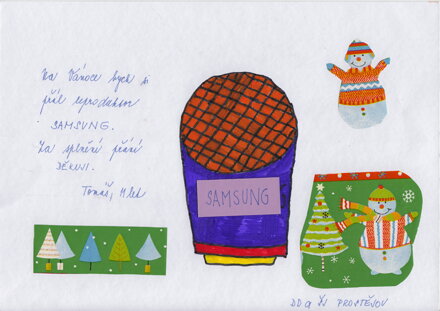 Na Vánoce bych si
přál reproduktor
SAMSUNG.
Za splnění přání
DĚKUJI.
Tomáš, 11 let
SAMSUNG
DD a ŠJ PROSTĚJOV